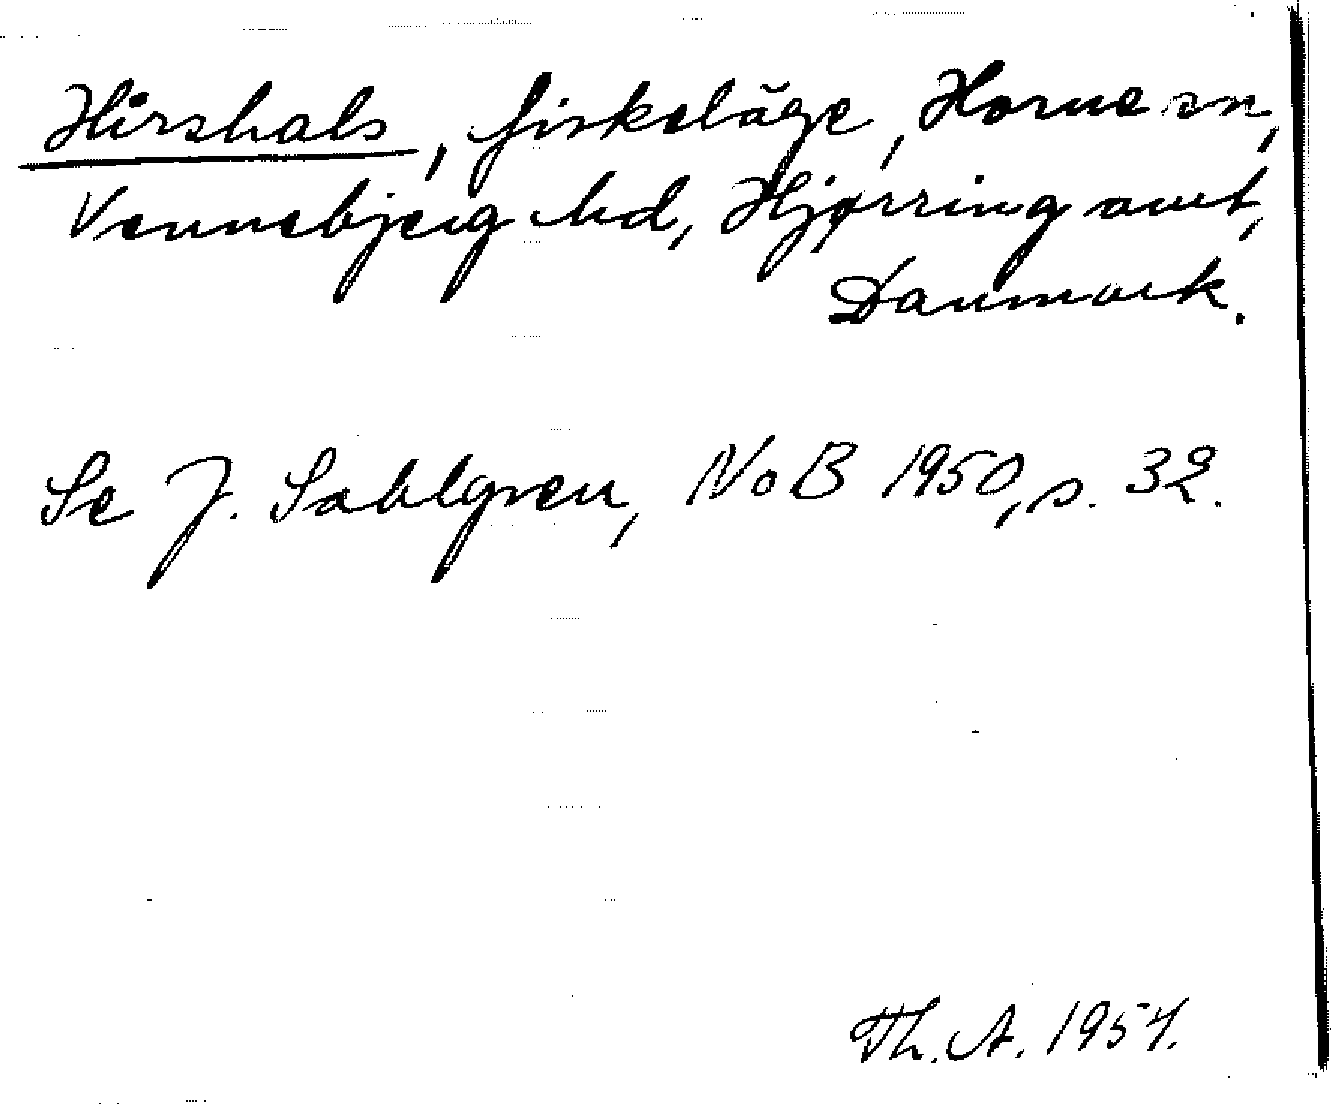 Hirshals, fiskeläge, Horne sn,
Vennebjerg hd, Hjørring amt,
Danmark.
Se J. Sahlgren, NoB 1950, s. 32.
Th. A. 1954.